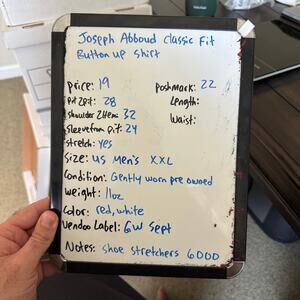 Joseph Abboud Classic Fit
Button up shirt
price: 19
poshmark: 22
Pit 2 pit: 28
Length:
shoulder 2 Hem: 32
Waist:
Sleeve from pit: 24
stretch: yes
Size: US Men's XXL
Condition: Gently worn pre owned
weight: 11oz
Color: red, white
Vendoo Label: GW Sept
Notes: shoe stretchers 6000